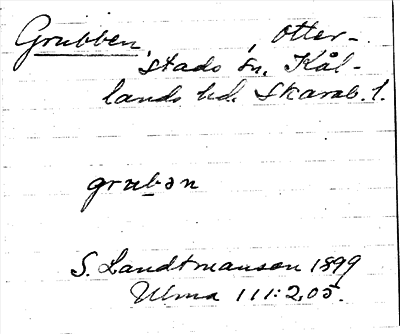 Grubben, Otter-
stads sn. Kål-
lands hd. Skarab. l.
grubən
S. Landtmanson 1899
Ulma 111:205.